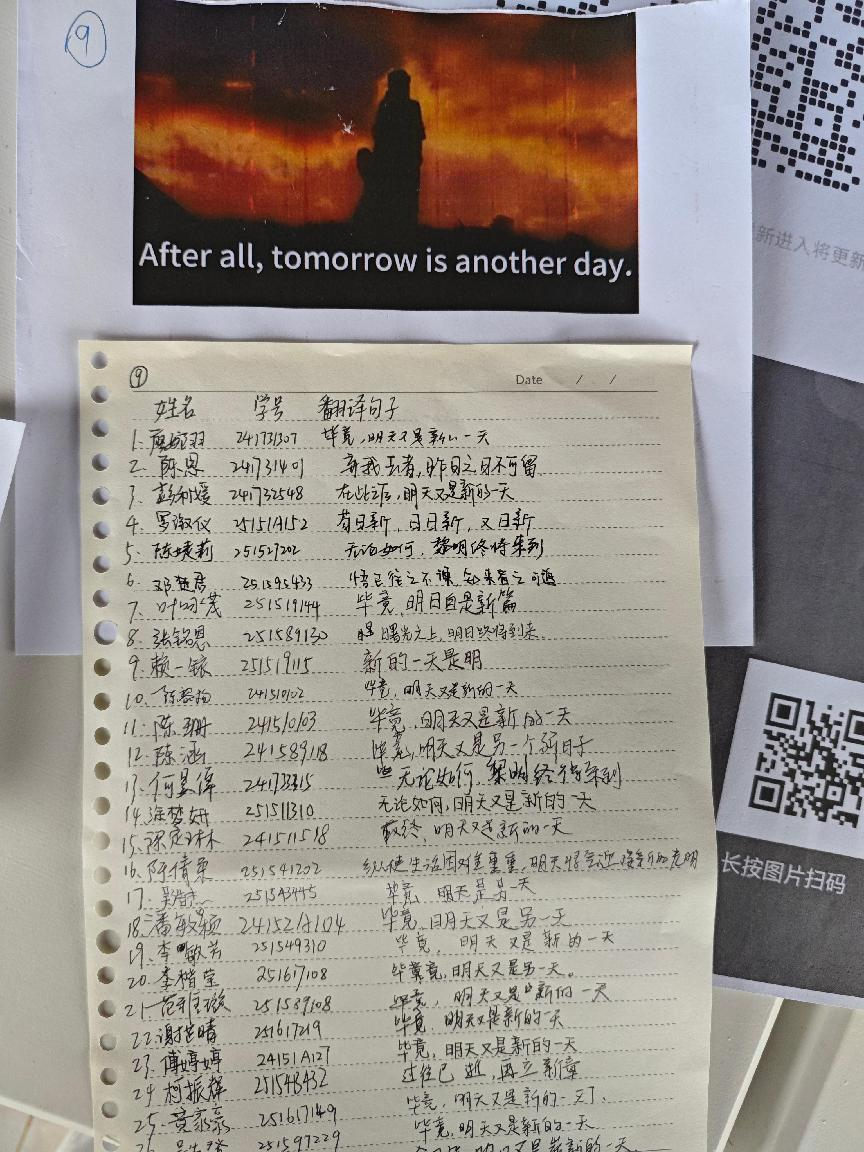 9
After all, tomorrow is another day.
新进入将更新
9
Date / /
姓名 学号 翻译句子
1. 241731307 毕竟,明天又是新的一天
2. 陈恩 241731401 弃我去者,昨日之日不可留
3. 彭利媛 241732548 在此之后,明天又是新的一天
4. 罗淑仪 25151A152 苟日新,日日新,又日新
5. 陈 莉 251527202 无论如何,黎明终将来到
6. 邓楚君 251595433 悟已往之不谏,知来者之可追
7. 叶 茂 251519144 毕竟,明日自是新篇
8. 张铭恩 251589130 曙光之上,明日终将到来。
9. 赖一 251519115 新的一天是明
10. 陈 241510102 毕竟,明天又是新的一天
11. 陈珊 241510103 毕竟,明天又是新的一天
12. 陈涵 241589118 毕竟,明天又是另一个新日子
13. 何昱 24173315 无论如何 黎明终将来到
14. 涂梦妍 251511310 无论如何,明天又是新的一天
15. 林 241511518 最终,明天又是新的一天
16. 陈倩雯 251541202 纵使生活困难重重,明天将会迎接新的光明
长按图片扫码
17. 251543445 毕竟,明天是另一天
18. 潘敏颖 241521A104 毕竟,明天又是另一天
19. 李敏芳 251549310 毕竟,明天又是新的一天
20. 李楷莹 251617108 毕竟,明天又是另一天。
21. 范雅璇 251589108 毕竟,明天又是新的一天
22. 谢芷晴 251617219 毕竟 明天又是新的一天
23. 傅婷婷 24151A127 毕竟,明天又是新的一天
24. 柯振辉 251548432 过往已逝,再立新章
25. 黄 251617149 毕竟,明天又是新的一天.
26. 251597229 毕竟,明天又是新的一天
明日又是崭新的一天